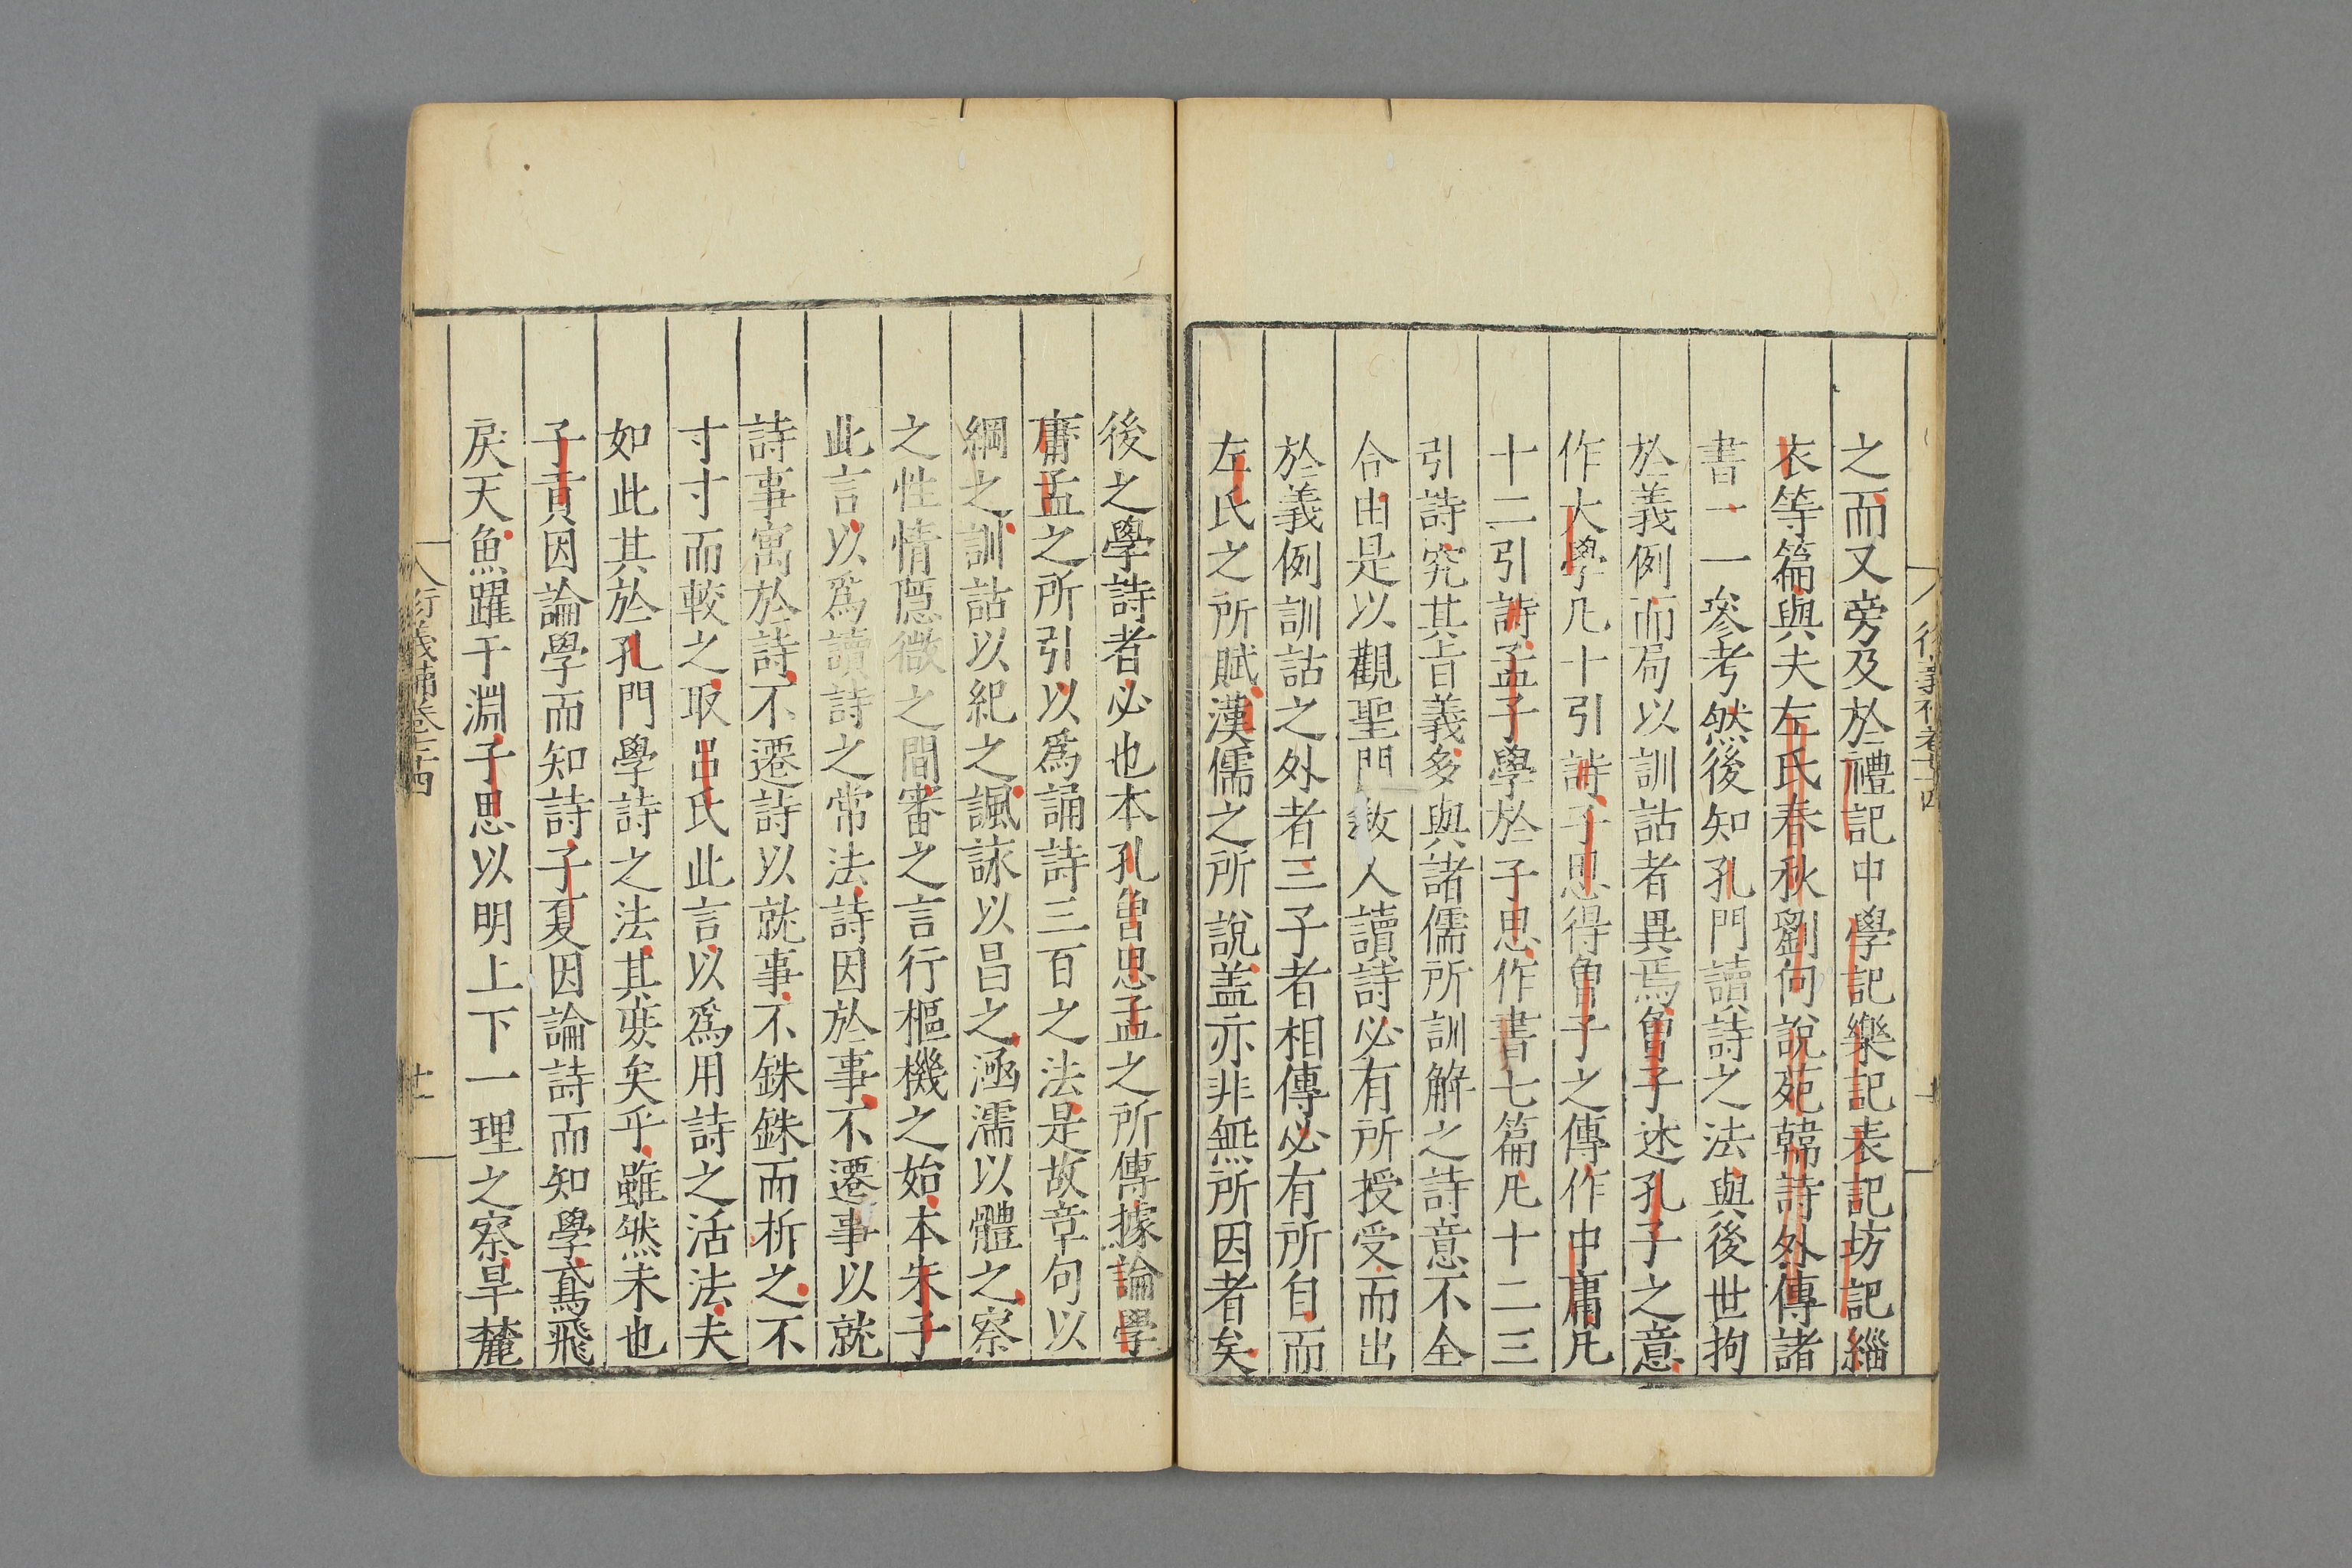 之而又旁及於禮記中學記樂記表記坊記緇
衣等篇與夫左氏春秋劉向說苑韓詩外傳諸
書一一參考然後知孔門讀詩之法與後世拘
於義例而局以訓詁者異焉曾子述孔子之意
作大學凡十引詩子思得曾子之傳作中庸凡
十二引詩孟子學於子思作書七篇凡十二三
引詩究其旨義多與諸儒所訓解之詩意不全
合由是以觀聖門敎人讀詩必有所授受而出
於義例訓詁之外者三子者相傳必有所自而
左氏之所賦漢儒之所說盖亦非無所因者矣
後之學詩者必也本孔曾思孟之所傳據論學
庸孟之所引以爲誦詩三百之法是故章句以
綱之訓詁以紀之諷詠以昌之涵濡以體之察
之性情隱微之間審之言行樞機之始本朱子
此言以爲讀詩之常法詩因於事不遷事以就
詩事寓於詩不遷詩以就事不銖銖而析之不
寸寸而較之取呂氏此言以爲用詩之活法夫
如此其於孔門學詩之法其庶矣乎雖然未也
子貢因論學而知詩子夏因論詩而知學鳶飛
戾天魚躍于淵子思以明上下一理之察旱麓
衍義補卷七十四